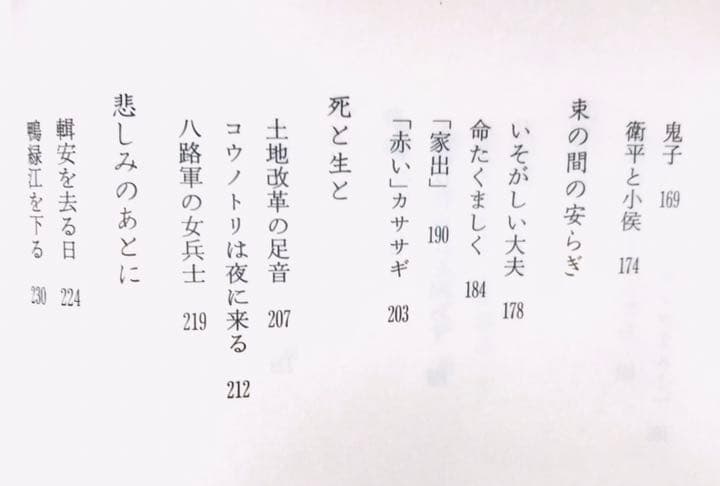 鬼子 169
衛平と小侯 174
束の間の安らぎ
いそがしい大夫 178
命たくましく 184
「家出」 190
「赤い」カササギ 203
死と生と
土地改革の足音 207
コウノトリは夜に来る 212
八路軍の女兵士 219
悲しみのあとに
輯安を去る日 224
鴨緑江を下る 230